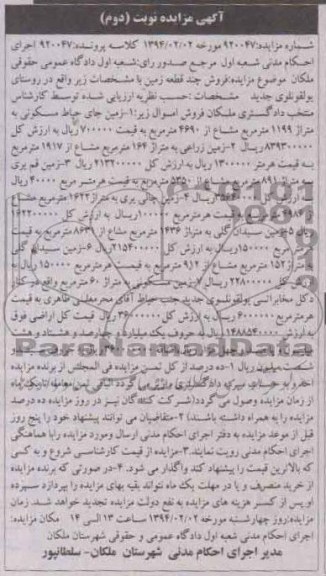 آگهی مزایده نوبت (دوم)
شماره مزایده:۹۲۰۰۴۷ مورخه ۱۳۹۴/۰۲/۰۲ کلاسه پرونده:۹۲۰۰۴۷ اجرای
احکام مدنی شعبه اول مرجع صدور رای:شعبه اول دادگاه عمومی حقوقی
ملکان موضوع مزایده:فروش چند قطعه زمین با مشخصات زیر واقع در روستای
بولقونلوی جدید مشخصات :حسب نظریه ارزیابی شده توسط کارشناس
منتخب دادگستری ملکان فروش اموال زیر:۱-زمین جای حیاط مسکونی به
متراژ ۱۱۹۹ مترمربع مشاع از ۴۶۹۰ مترمربع به قیمت ۷۰۰۰۰۰ ریال به ارزش کل
۸۳۹۳۰۰۰۰۰ریال ۲-زمین زراعی به متراژ ۱۶۴ مترمربع مشاع از ۱۹۱۷ مترمربع
به قیمت هرمتر ۱۳۰۰۰۰۰ ریال به ارزش کل ۲۱۳۲۰۰۰۰۰ ریال ۳-زمین قم پری
به متراژ ۸۹۱ مترمربع مشاع از ۵۳۵۰ مترمربع به قیمت هر متر مربع ۴۰۰۰۰ ریال
به ارزش کل ۳۵۶۴۰۰۰۰ ریال ۴-زمین چالی پری به متراژ ۱۶۲۲ مترمربع مشاع
قیمت هرمترمربع ۱۰۰۰۰۰ریال به ارزش کل ۱۶۲۲۰۰۰۰۰
ریال ۵-زمین سیدان گلی به متراژ ۱۴۳۶ مترمربع مشاع از ۸۶۳۱ مترمربع
مربع ۱۵۰۰۰۰ریال به ارزش کل ۲۱۵۴۰۰۰۰۰ ریال ۶-زمین سیدان گلی
به متراژ ۱۵۲ مترمربع مشاع از ۹۱۲ مترمربع به قیمت هرمترمربع ۱۵۰۰۰۰ ریال به
ارزش کل ۲۲۸۰۰۰۰۰ ریال ۷-زمین مسکونی به متراژ ۶۰ مترمربع واقع در کنار
دکل مخابراتی بولقونلوی جدید جنب حیاط آقای محرمعلی طاهری به قیمت
هرمترمربع ۶۰۰۰۰۰ ریال به ارزش کل ۳۶۰۰۰۰۰۰ ریال قیمت کل اراضی فوق
به ارزش ۱۴۸۸۵۴۰۰۰۰ریال به حروف یک میلیارد و چهارصد و هشتاد و هشت
شصت میلیون ریال ۱-ده درصد از کل ثمن مزایده فی المجلس از برنده مزایده
اخذ و به حساب سپرده دادگستری واریز می گردد الباقی ثمن معامله تا یک ماه
از زمان مزایده وصول می گردد(شرکت کنندگان نیز در روز مزایده ده درصد
مزایده را به همراه داشته باشند) ۲-متقاضیان می توانند پیشنهاد خود را پنج روز
قبل از موعد مزایده به دفتر اجرای احکام مدنی ارسال ومورد مزایده رابا هماهنگی
اجرای احکام مدنی رویت نمایند. ۳-مزایده از قیمت کارشناسی شروع و به کسی
که بالاترین قیمت را پیشنهاد کند واگذار می شود. ۴-در صورتی که برنده مزایده
از خرید منصرف و یا در مهلت یک ماه نتواند بقیه بهای مزایده را بپردازد سپرده
او پس از کسر هزینه های مزایده به نفع دولت مزایده تجدید خواهد شد. زمان
مزایده:روز چهارشنبه مورخه ۱۳۹۴/۰۲/۰۲ ساعت ۱۳ الی ۱۴ مکان مزایده:
اجرای احکام مدنی شعبه اول دادگاه عمومی و حقوقی شهرستان ملکان
مدیر اجرای احکام مدنی شهرستان ملکان- سلطانپور
ParsNamadData